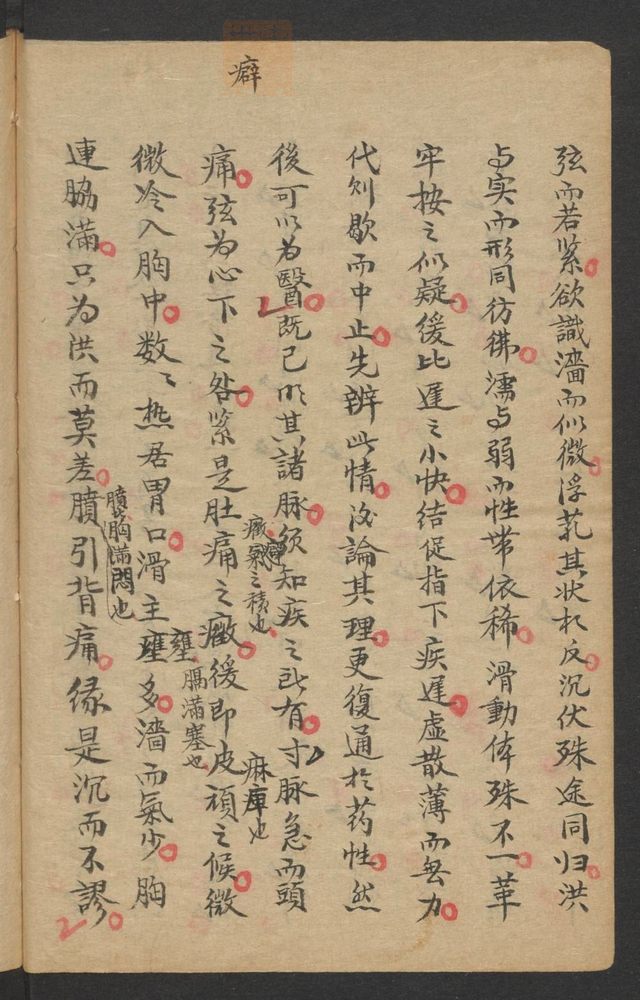 癖
弦而若紧欲識濇而似微浮芤其状相反沉伏殊途同归洪
与实而形同彷彿濡与弱而性带依稀滑動体殊不一革
牢按之似疑缓比遲之小快结促指下疾遲虚散薄而無力
代则歇而中止先辨此情次論其理更復通於药性然
後可以为醫既已明其諸脉须知疾之所有寸脉急而頭
痛弦为心下之咎紧是肚痛之癥缓即皮頑之候微
癥氣之積也
麻痺也
微冷入胸中数〻热居胃口滑主壅多濇而氣少胸
壅
膈滿塞也
連脇滿只为洪而莫差膹引背痛缘是沉而不謬
膹胸滿悶也